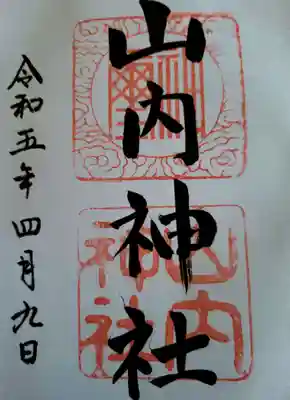 山内神社
令和五年四月九日
山内
神社